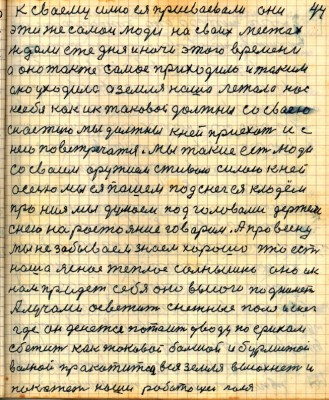 47
к сваему имю ся присваевали они
эти же самои люди на сваих местах
ждали сже дня и начи этого времени
а оно также самое приходило и таким
оно уходила а земля наша летала нас
себя как ик таковой должны со сваею
снастию мы должны кней приехат и с
нею повстречатся. мы такие ест люди
со сваим аружием стивою силаю кней
осению мы ся пашем под снег ся кладём
про ния мы думаем под головами держим
снею на ростояние говарим. А про весну
мы не забываем знаем харашо что ест
наша ясная теплое солнышко оно ик
нам придет себя оно высоко подымет
Алучами осветит снежные поля и снег
где он денется потаит уводу по ярикам
сбежит как таковой балшой и бурливой
валной пракатится вся земля высохнет и
покажет наши работащеи поля